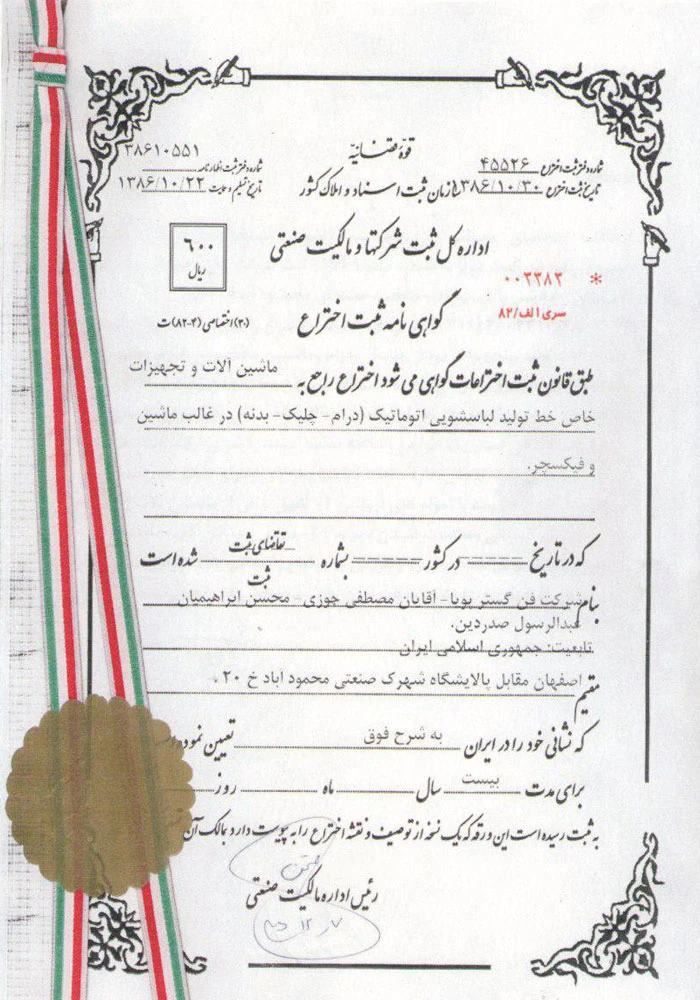 قوهٔ قضائیه
شماره دفتر ثبت اختراع ۴۵۵۲۶
تاریخ ثبت اختراع ۱۳۸۶/۱۰/۳۰
سازمان ثبت اسناد و املاک کشور
۳۸۶۱۰۵۵۱
شماره دفتر ثبت اظهارنامه
تاریخ تسلیم و ساعت ۱۳۸۶/۱۰/۲۲
اداره کل ثبت شرکتها و مالکیت صنعتی
۶۰۰
ریال
* ۰۰۲۲۸۲
سری الف/۸۲
گواهی نامه ثبت اختراع
(۲۰) اختصاصی (۴-۸۲) ت
طبق قانون ثبت اختراعات گواهی می شود اختراع راجع به ماشین آلات و تجهیزات
خاص خط تولید لباسشویی اتوماتیک (درام- چلیک- بدنه) در غالب ماشین
و فیکسچر.
که در تاریخ ------ در کشور ------ بشماره تقاضای ثبت شده است
ثبت
بنام شرکت فن گستر پویا- آقایان مصطفی جوزی- محسن ابراهیمیان
عبدالرسول صدردین.
تابعیت: جمهوری اسلامی ایران
مقیم اصفهان مقابل پالایشگاه شهرک صنعتی محمود آباد خ ۲۰
که نشانی خود را در ایران به شرح فوق تعیین نموده
برای مدت بیست سال ماه روز
به ثبت رسیده است این ورقه که یک نسخه از توصیف و نقشه اختراع را به پیوست دارد بمالک آن
رئیس اداره مالکیت صنعتی